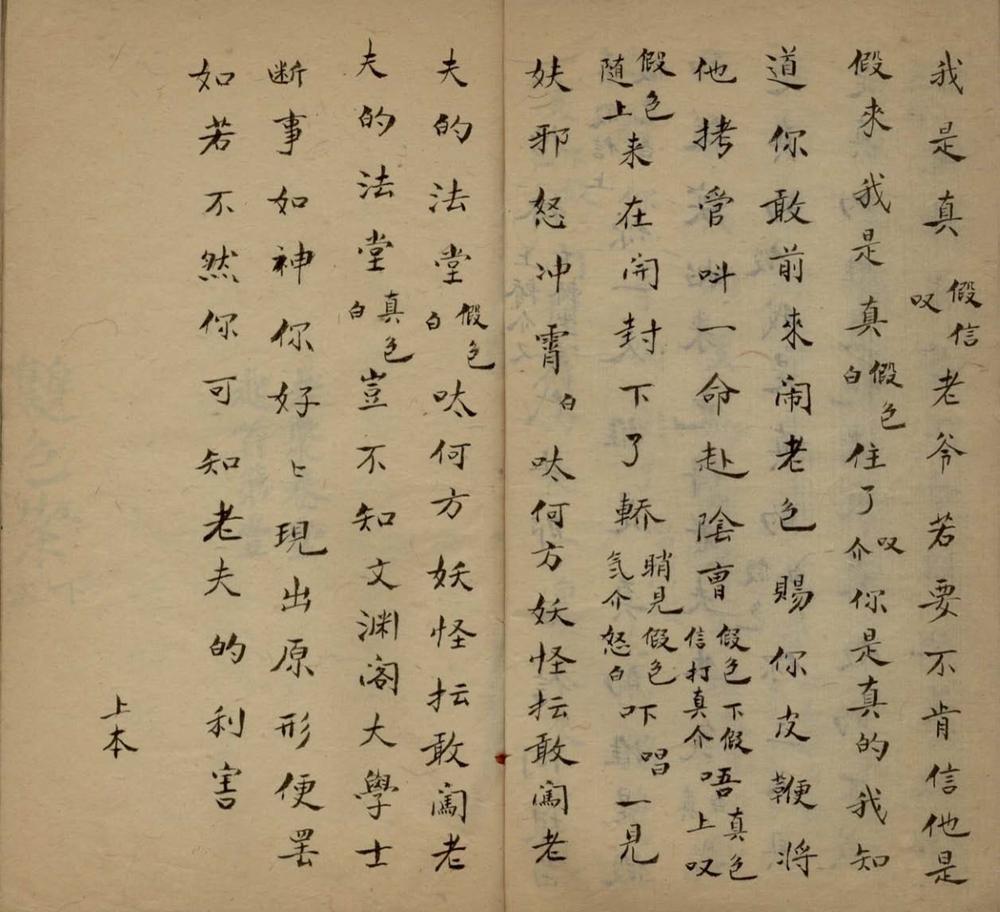 我是真假信叹老爷若要不肯信他是
假來我是真假色白住了叹介你是真的我知
道你敢前來闹老包賜你皮鞭將
他拷管呌一命赴陰曺假色下假信打真介唔真色上叹
假色随上来在闲封下了轎睄見气介假色怒白吓唱一見
妖邪怒冲霄白呔何方妖怪抎敢闖老
夫的法堂假色白呔何方妖怪抎敢闖老
夫的法堂真色白豈不知文渊阁大學士
断事如神你好〻現出原形便罢
如若不然你可知老夫的利害
上本